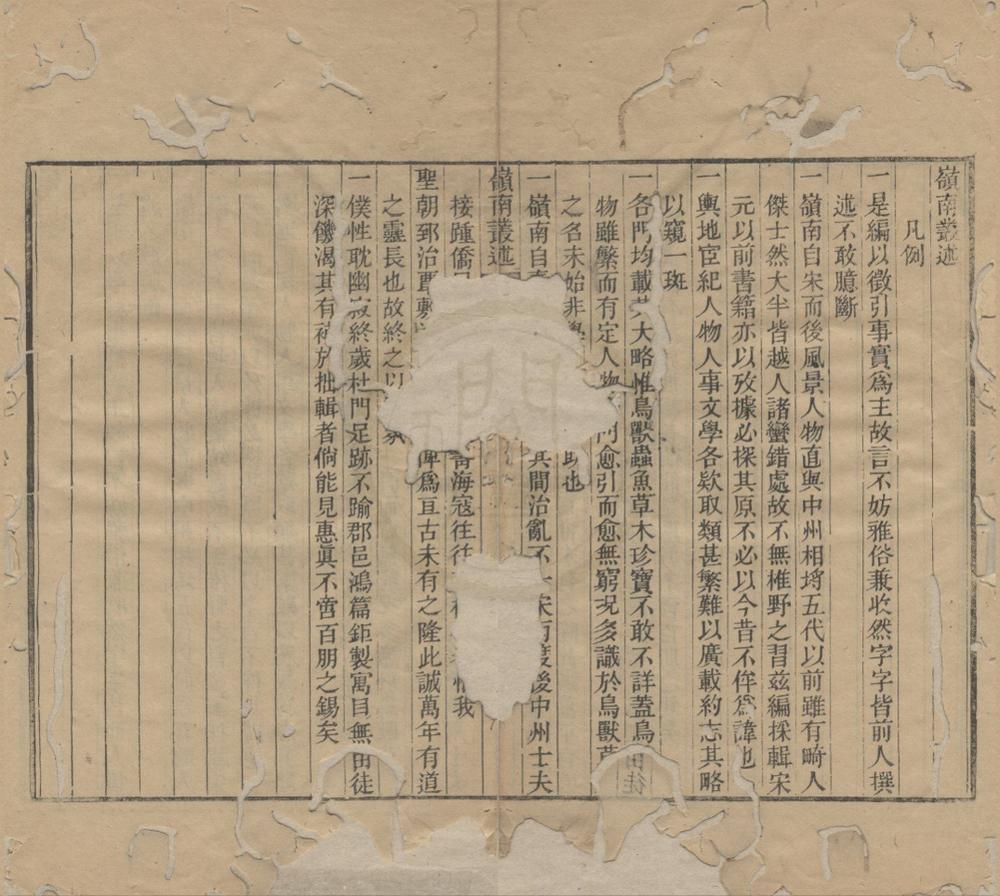 嶺南叢述
凡例
一是編以徵引事實爲主故言不妨雅俗兼收然字字皆前人撰
述不敢臆斷
一嶺南自宋而後風景人物直與中州相埒五代以前雖有畸人
傑士然大半皆越人諸蠻錯處故不無椎野之習茲編採輯宋
元以前書籍亦以攷據必探其原不必以今昔不侔爲諱也
一輿地宦紀人物人事文學各欵取類甚繁難以廣載約志其略
以窺一斑
一各門均載其大略惟鳥獸蟲魚草木珍寶不敢不詳蓋鳥
物雖繁而有定人物門愈引而愈無窮况多識於鳥獸草
之名未始非學助也
一嶺南自其間治亂不宋南渡後中州士夫
嶺南叢述
接踵僑海寇往往我
聖朝郅治覃敷俾爲亘古未有之隆此誠萬年有道
之靈長也故終之以
一僕性耽幽寂終歲杜門足跡不踰郡邑鴻篇鉅製寓目無由徒
深饑渴其有於批輯者倘能見惠眞不啻百朋之錫矣